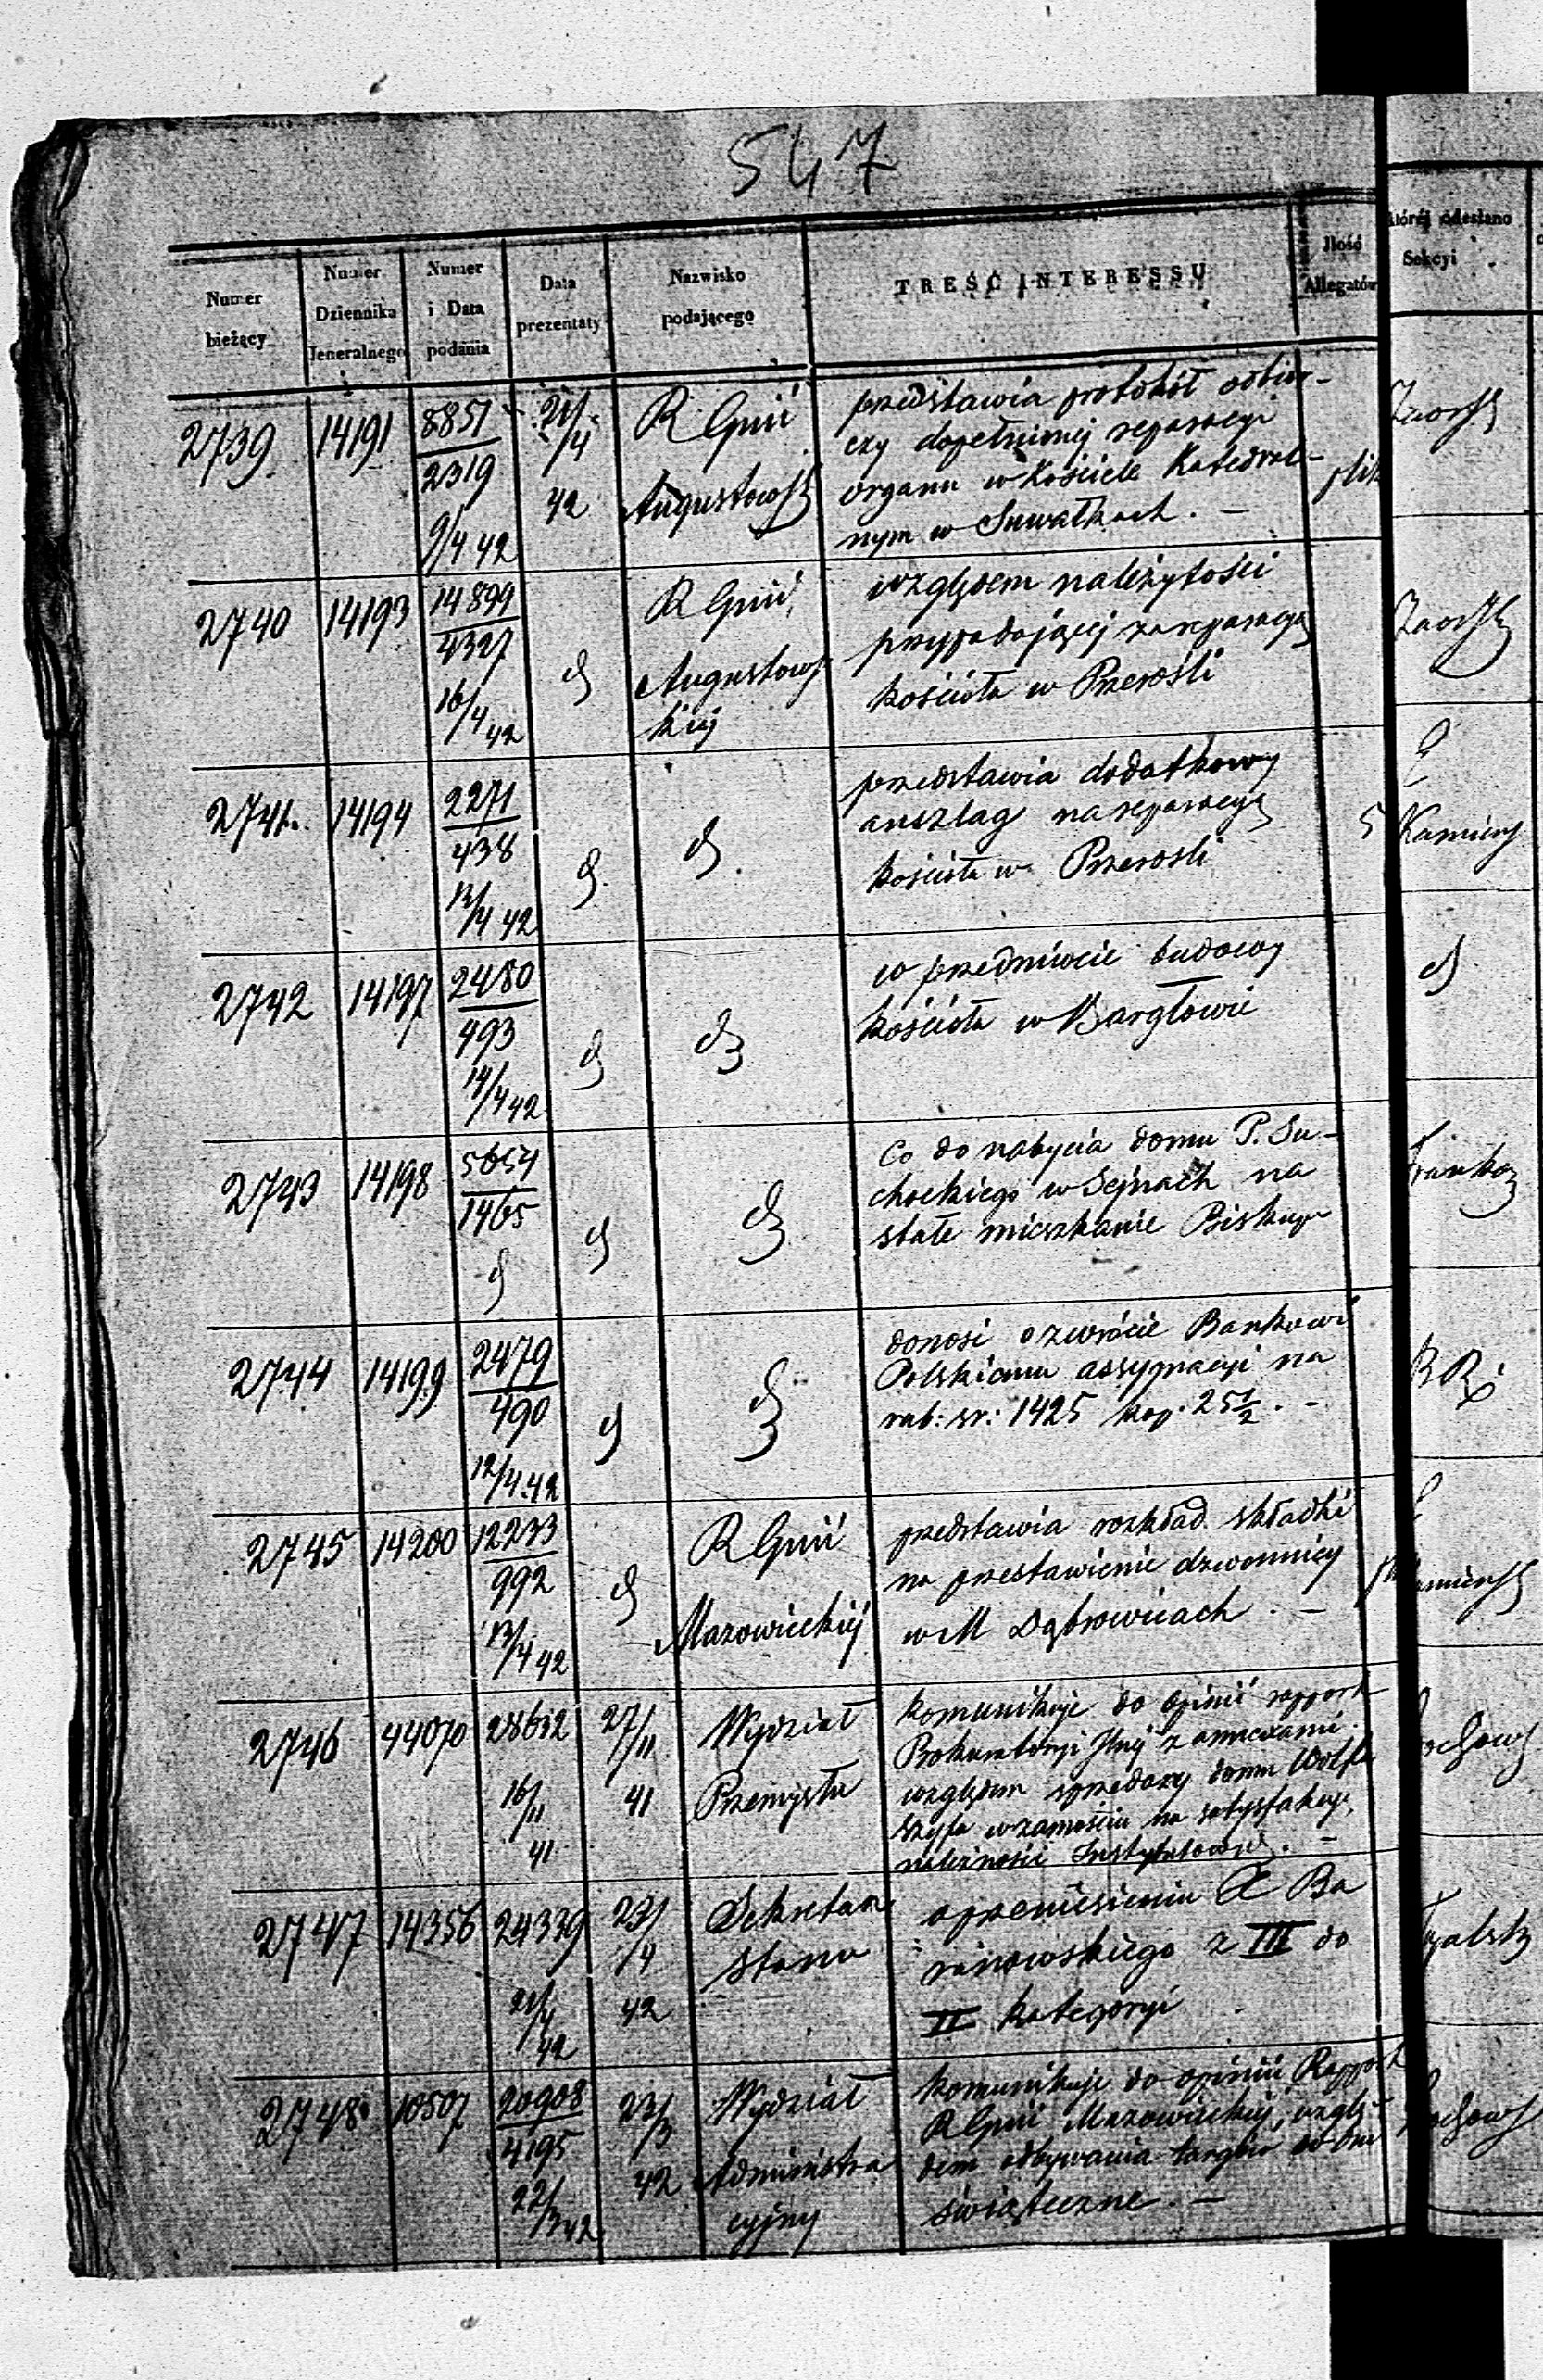 547
Numer
bieżący
Numer
Dziennika
Jeneralnego
Numer
i Data
podania
Data
prezentaty
Nazwisko
podającego
TREŚĆ INTERESSU
Ilość
Allegatów
której odesłano
Sekcyi
2739 14191 8851
2319
9/4 42
21/4
42
R Gnii
Augustows
przedstawia protokół odbior-
czy dopełnionej reparacyi
organu w Kościele Katedral-
nym w Suwałkach. -
plik
2740 14193 14899
4327
16/4 42
R Gnii
Augustows-
kiej
względem należytości
przypadającej za reparacyą
kościoła w Przerośli
2741. 14194 2271
438
13/4 42
przedstawia dodatkowy
anszlag na reparacyą
kościoła w Przerosli
5
2742 14197 2480
493
14/4 42
w przedmiocie budowy
kościoła w Bargłowie
2743 14198 5654
1465
Co do nabycia domu P. Su-
chockiego w Sejnach na
stałe mieszkanie Biskupa
2744 14199 2479
490
12/4 42
donosi o zwrócie Bankowi
Polskiemu assygnacyi na
rub: sr: 1425 kop. 25 1/2. -
2745 14200 12233
992
13/4 42
R Gnii
Mazowieckiej
przedstawia rozkład składki
na przestawienie dzwonnicy
w M Dąbrowicach. -
2746 44070 28612
16/11
41
27/11
41
Wydział
Przemysłu
komunikuje do opinii rapport
Prokuratoryi
względem sprzedaży domu Wolfa
w Zamościu na satysfakcyą
należności Instytutowej. -
2747 14356 24339
21/4
42
23/4
42
Sekretarz
Stanu
o przeniesieniu X Ba
ranowskiego z III do
II kategoryi
2748 10507 20908
4195
22/3 42
23/3
42
Wydział
Administra
cyjny
komunikuje do opinii Rapport
R Gnii Mazowieckiej, wzglę-
dem odbywania targów w dni
świąteczne. -